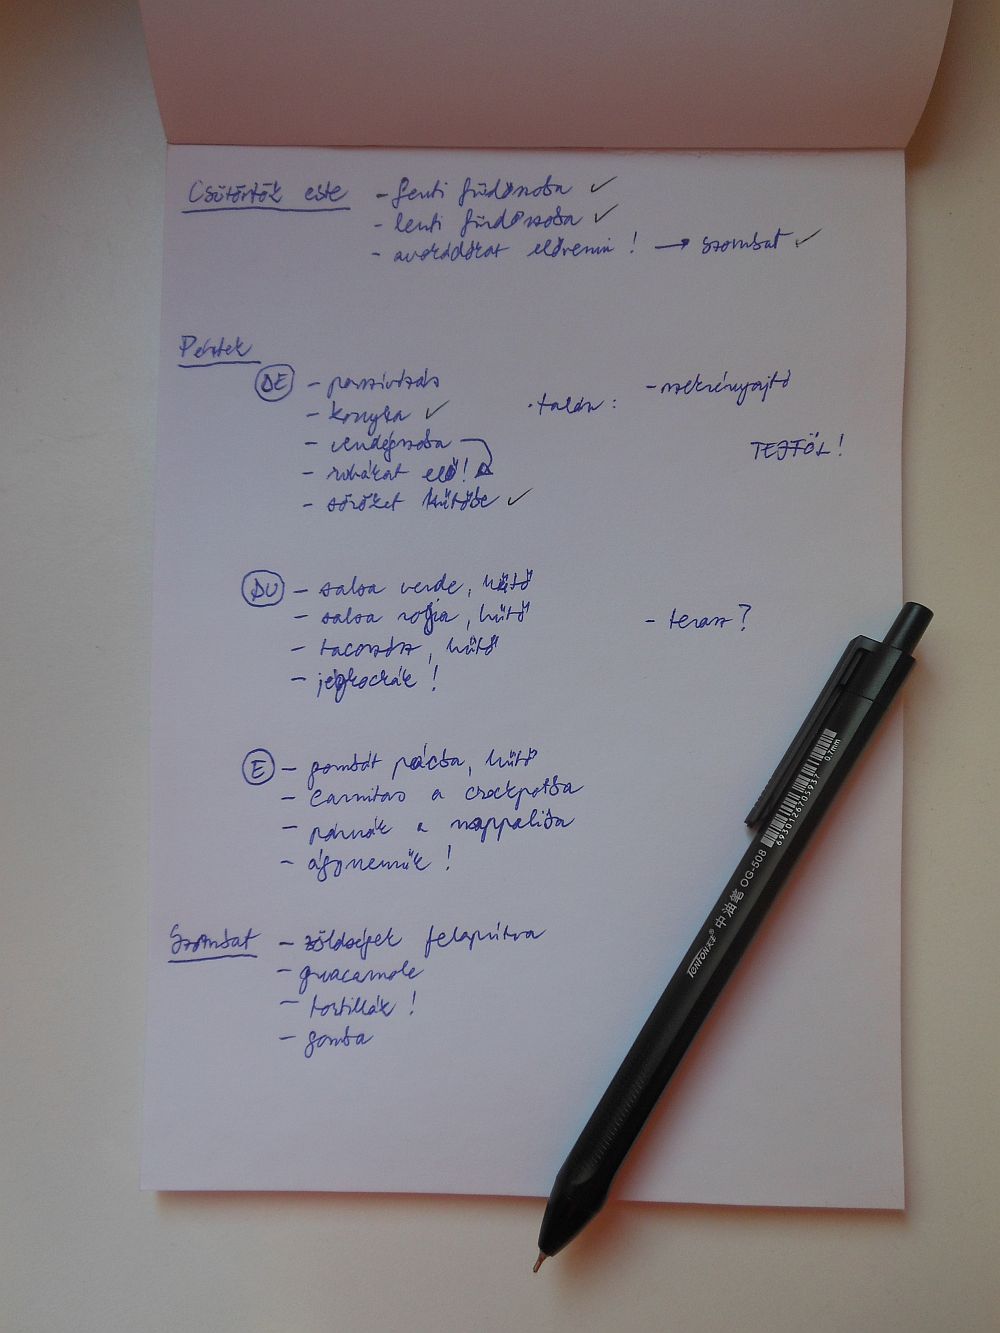 Csütörtök este - fenti fürdőszoba ✓
- lenti fürdőszoba ✓
- avokádókat elővenni ! → szombat ✓
Péntek
DE - porszívózás
- konyha ✓
- vendégszoba
- ruhákat elő!
- söröket hűtőbe ✓
· talán : - szekrényajtó
TEJFÖL !
DU - salsa verde, hűtő
- salsa roja, hűtő
- tacoszósz, hűtő
- jégkockák !
- terasz ?
E - gombát pácba, hűtő
- Carnitas a crockpotba
- párnák a nappaliba
- ágyneműk !
Szombat - zöldségek felaprítva
- guacamole
- tortillák !
- gomba
TENFON天卓® 中油笔 OG-508
6930126705937
0.7mm